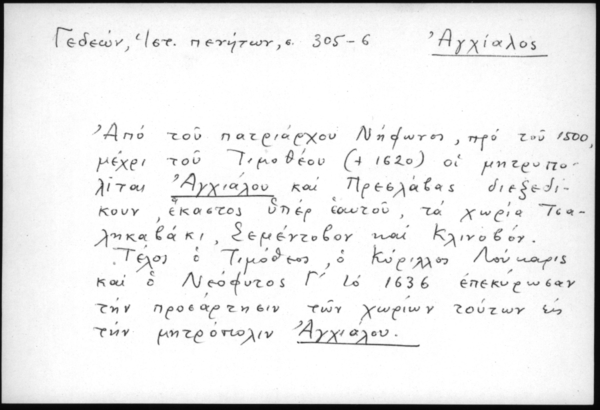 Γεδεών, Ἱστ. πενήτων, σ. 305-6 Ἀγχίαλος
Ἀπό τοῦ πατριάρχου Νήφωνος, πρό τοῦ 1500,
μέχρι τοῦ Τιμοθέου (+ 1620) οἱ μητροπο-
λῖται Ἀγχιάλου καί Πρεσλάβας διεξεδί-
κουν, ἕκαστος ὑπέρ ἑαυτοῦ, τά χωρία Τσα-
ληκαβάκι, Σεμέντοβον καί Κλινοβόν.
Τέλος ὁ Τιμόθεος, ὁ Κύριλλος Λούκαρις
καί ὁ Νεόφυτος Γ΄ τό 1636 ἐπεκύρωσαν
τήν προσάρτησιν τῶν χωρίων τούτων εἰς
τήν μητρόπολιν Ἀγχιάλου.